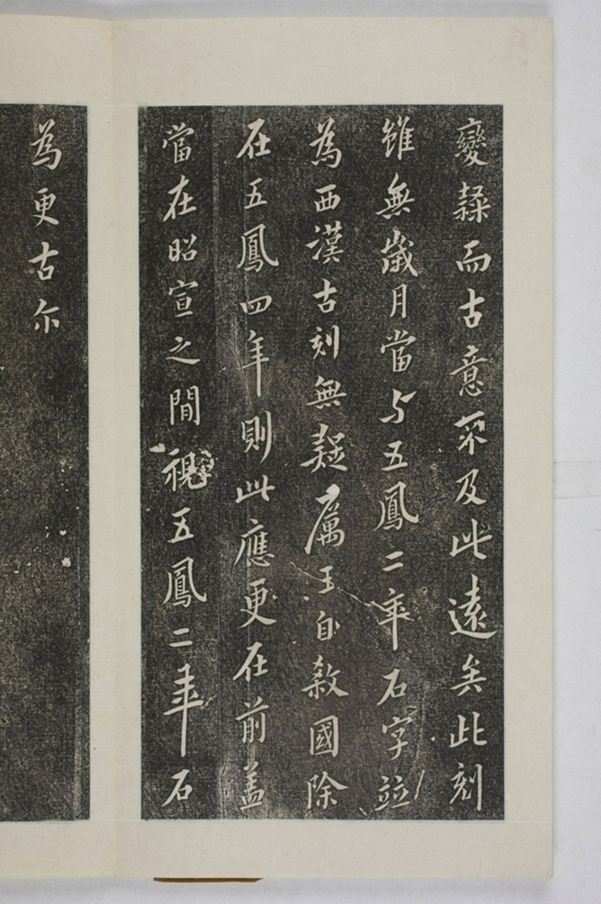 變隷而古意不及此遠矣此刻
雖無歲月當与五鳳二年石字並
為西漢古刻無疑厲王自殺國除
在五鳳四年則此應更在前盖
當在昭宣之間視五鳳二年石
為更古尓